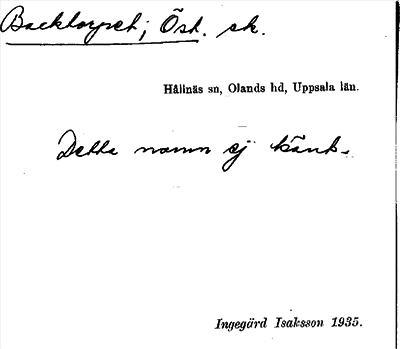 Backtorpet, Öst. sk.
Hållnäs sn, Olands hd, Uppsala län.
Detta namn ej känt.
Ingegärd Isaksson 1935.